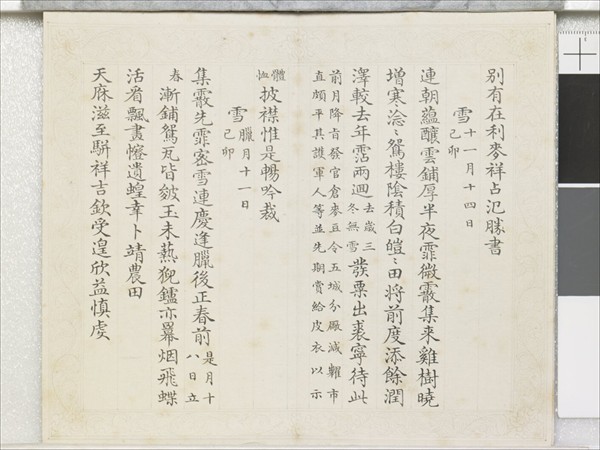 別有在利麥祥占氾勝書
雪 十一月十四日 己卯
連朝蘊釀雲鋪厚半夜霏微霰集來雞樹曉
增寒淰〻鴛樓陰積白皚〻田將前度添餘潤
澤較去年霑兩迴 去歲三 冬無雪 發粟出裘寧待此
前月降旨發官倉麥豆令五城分廠減糶市
直頗平其護軍人等並先期賞給皮衣以示
體恤 披襟惟是暢吟裁
雪 臘月十一日 己卯
集霰先霏密雪連慶逢臘後正春前 是月十 八日立
春 漸鋪鴛瓦皆皴玉未爇猊鑪亦羃烟飛蝶
活看飄畫幨遺蝗幸卜靖農田
天庥滋至駢祥吉欽受遑欣益慎虔